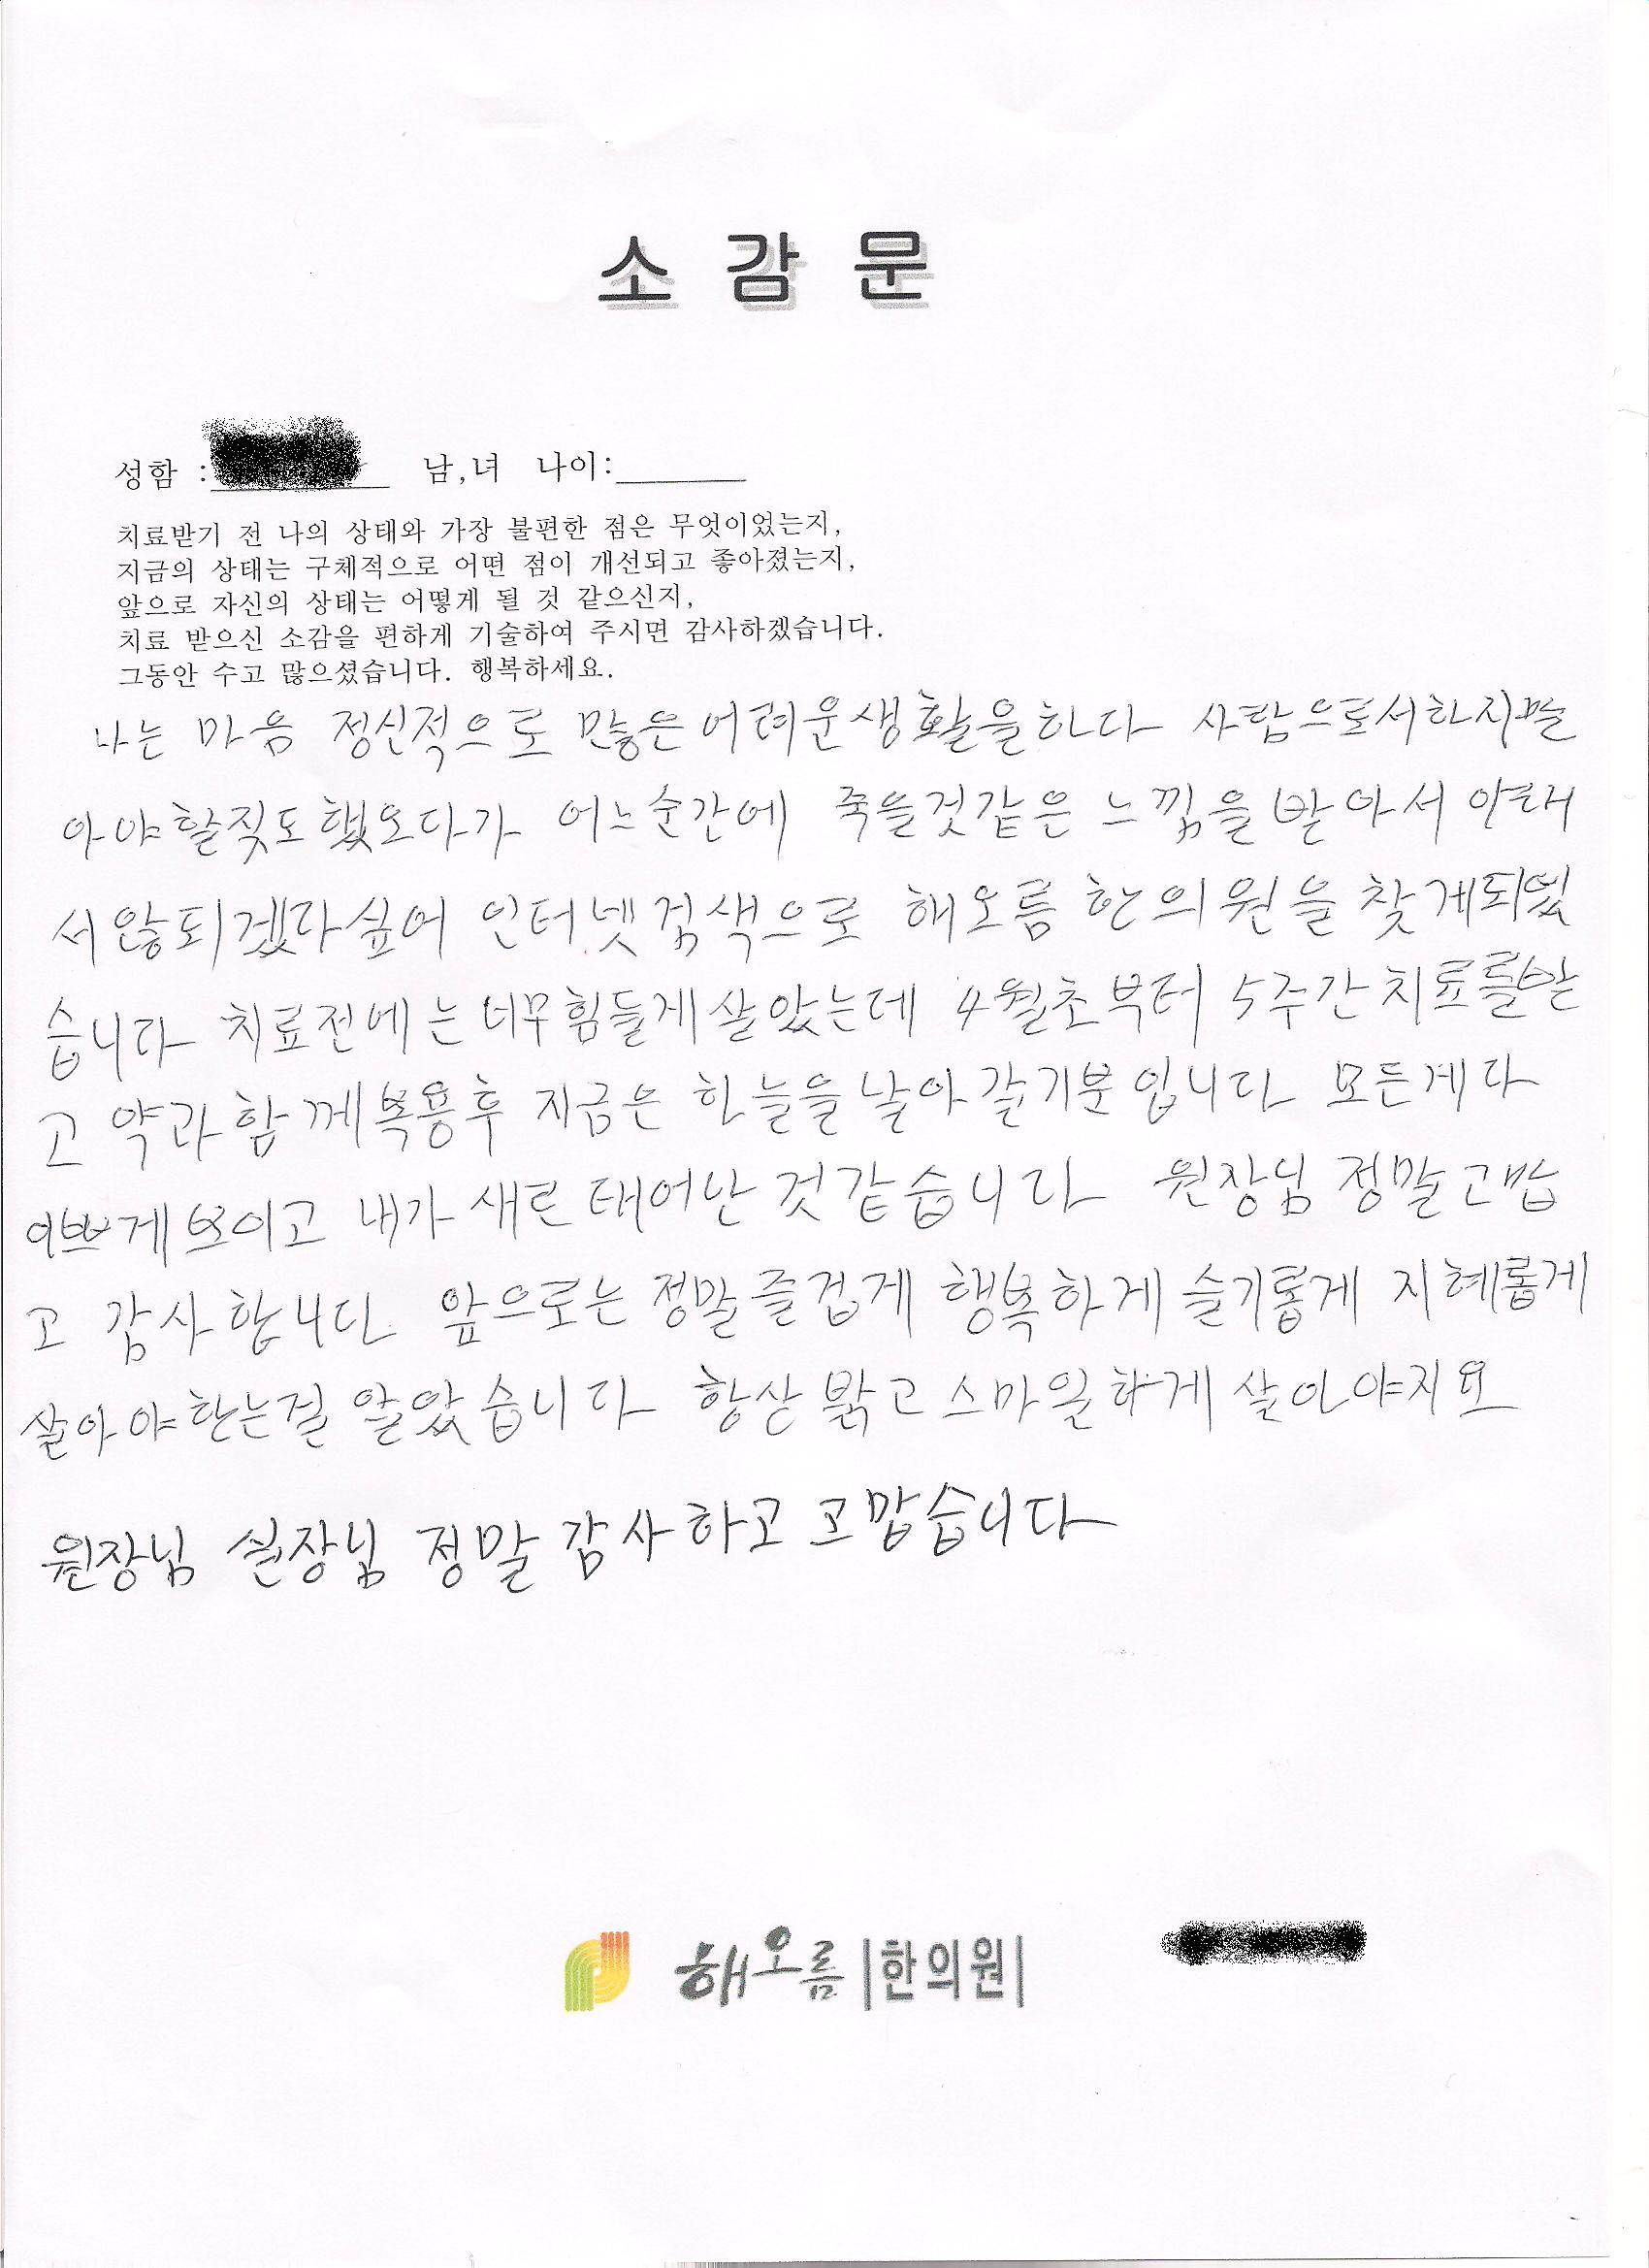 소 감 문
성함 : 남,녀 나이:
치료받기 전 나의 상태와 가장 불편한 점은 무엇이었는지,
지금의 상태는 구체적으로 어떤 점이 개선되고 좋아졌는지,
앞으로 자신의 상태는 어떻게 될 것 같으신지,
치료 받으신 소감을 편하게 기술하여 주시면 감사하겠습니다.
그동안 수고 많으셨습니다. 행복하세요.
나는 마음 정신적으로 많은어려운생활을하다 사람으로서하지말
아야할짓도했오다가 어느순간에 죽을것같은 느낌을받아서 안돼
서않되겠다싶어 인터넷검색으로 해오름한의원을찾게되었
습니다 치료전에는너무힘들게살았는데 4월초부터 5주간치료를받
고 약과함께복용후 지금은 하늘을날아갈기분입니다 모든게다
이쁘게보이고 내가새로태어난것같습니다 원장님 정말고맙
고 감사합니다 앞으로는정말즐겁게 행복하게슬기롭게 지혜롭게
살아야한는걸 알았습니다 항상밝고스마일하게살아야지요
원장님 실장님 정말감사하고고맙습니다
해오름|한의원|